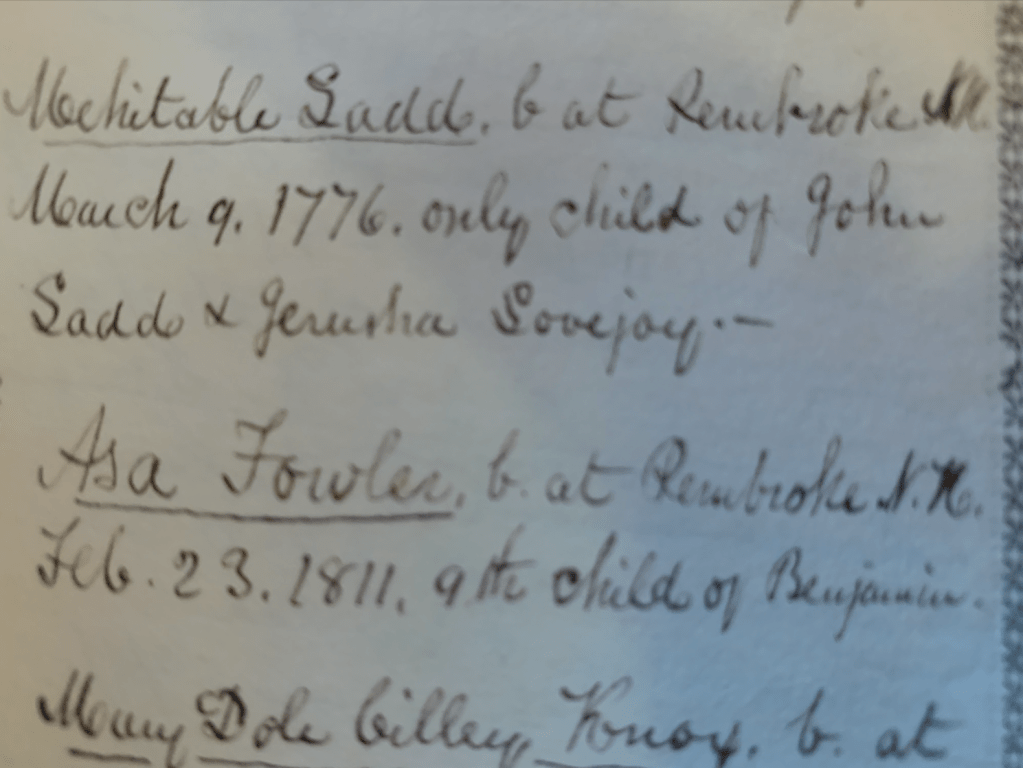 Mechitable Ladd. b at Pembroke N.H.
March 9. 1776. only child of John
Ladd & Jerusha Lovejoy.—
Asa Fowler, b. at Pembroke N.H.
Feb. 23. 1811. 9th child of Benjamin.
Mary Dole Cilley, Knox. b. at